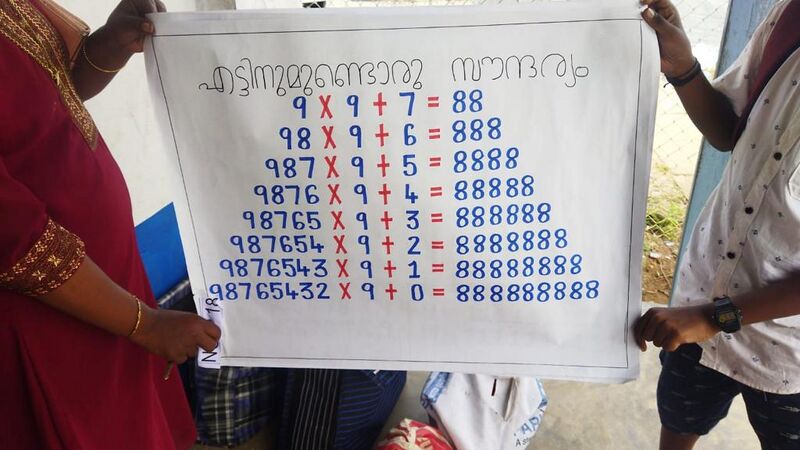 എട്ടിനുമുണ്ടൊരു സൗന്ദര്യം
9 X 9 + 7 = 88
98 X 9 + 6 = 888
987 X 9 + 5 = 8888
9876 X 9 + 4 = 88888
98765 X 9 + 3 = 888888
987654 X 9 + 2 = 8888888
9876543 X 9 + 1 = 88888888
98765432 X 9 + 0 = 888888888